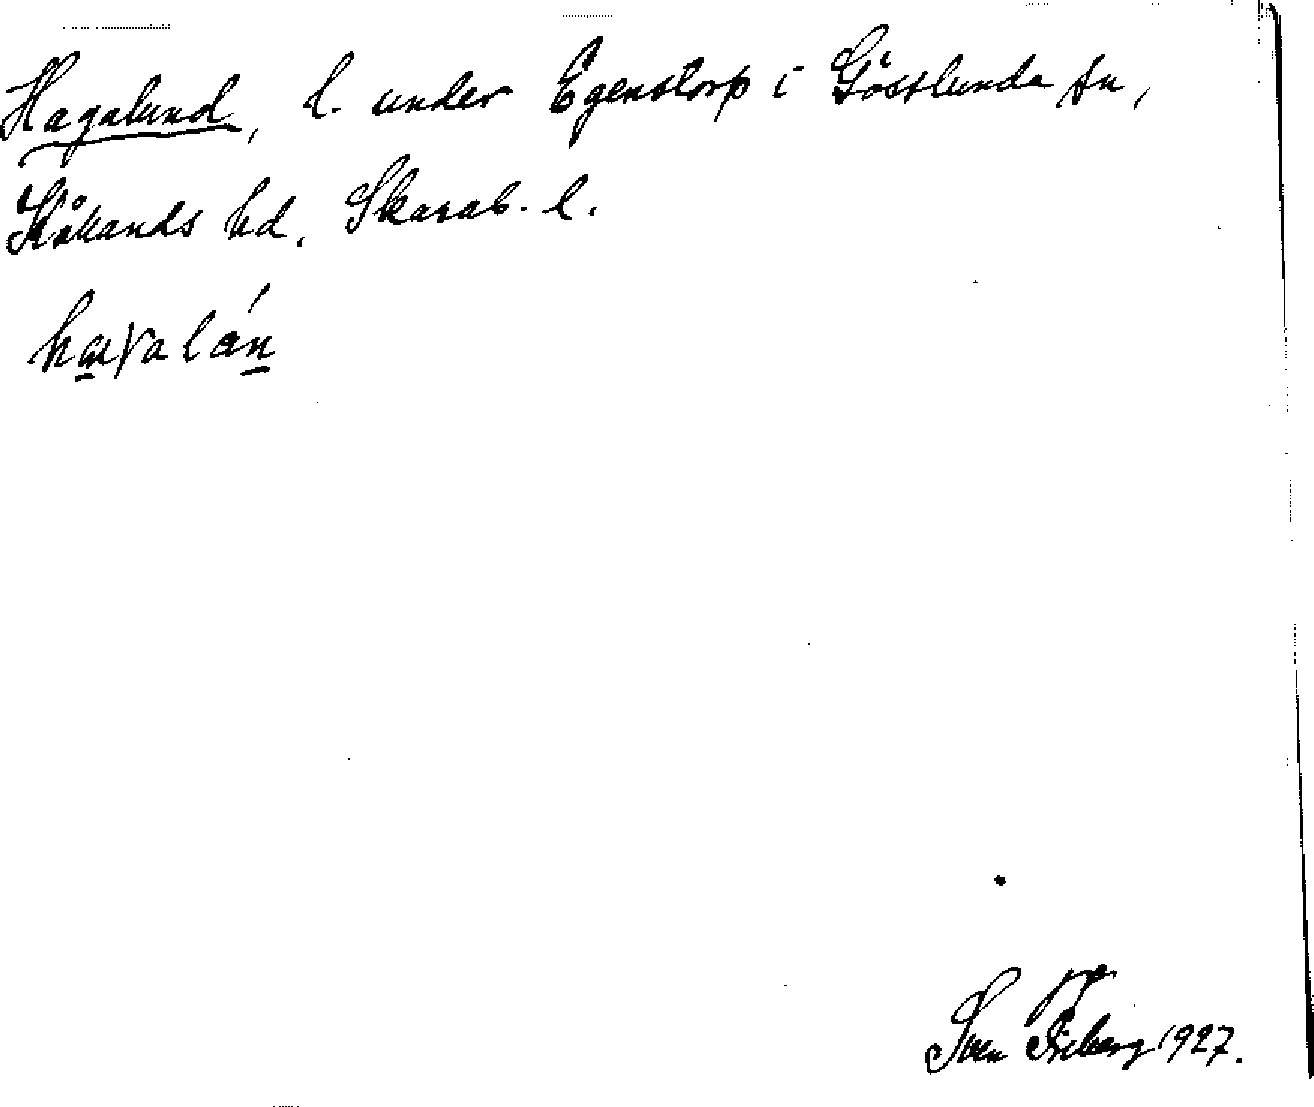 Hagalund, l. under Egenstorp i Gösslunda sn,
Kållands hd. Skarab. l.
Sven 1927.